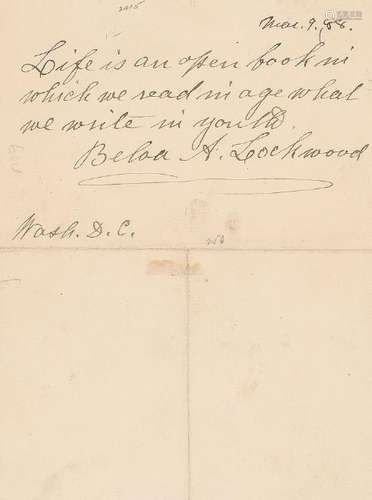 2215
Mar. 9. 88.
Life is an open book in
which we read in age what
we write in youth.
Belva A. Lockwood
Wash. D. C.
250